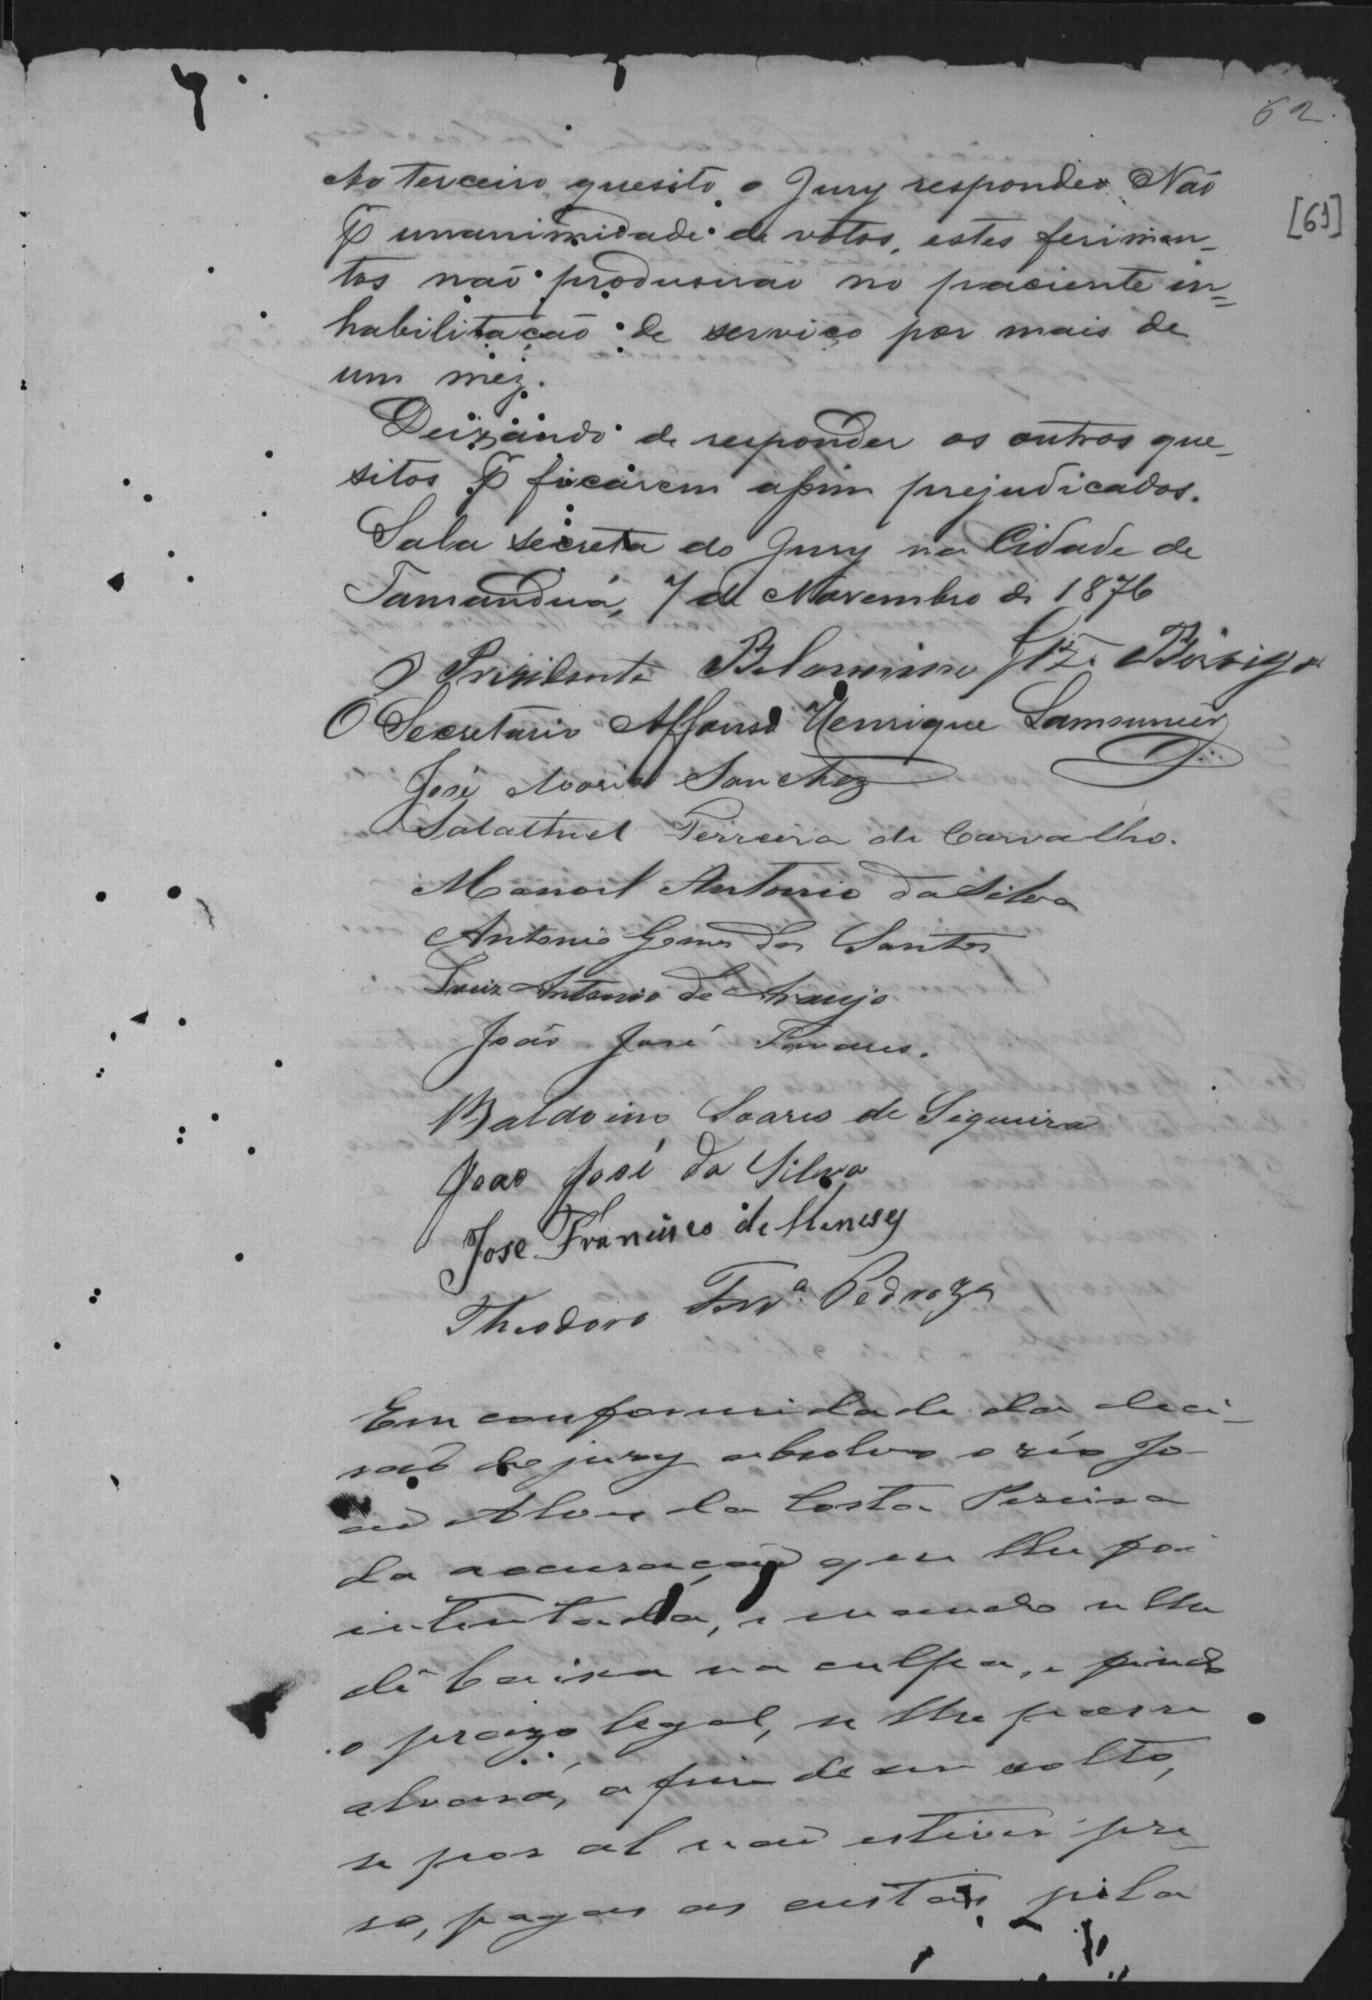 62.
[61]
Ao terceiro quesito o Jury respondeo Não
P unanimidade de votos, estes ferimen-
tos não produsirão no paciente in=
habilitação de serviço por mais de
um mez.
Deixando de responder os outros que-
sitos P ficarem assim prejudicados.
Sala secreta do Jury na Cidade de
Tamanduá, 7 de Novembro de 1876
O Prizidente Belarmino
O Secretario Affonso Henrique Lamounier
José Maria Sanchez
Salathiel Ferreira de Carvalho.
Manoel Antonio da Silva
Antonio Gomes dos Santos
Luiz Antonio de Araujo
João José Tavares.
Baldoino Soares de Siqueira
Joao José da Silva
Jose Francisco de Menesez
Theodoro Ferra. Pedroza
Em conformidade da deci-
saõ do jury absolvo o réo Jo-
aõ Alves da Costa Pereira
da accusaçaõ que lhe foi
intentada, e mando se lhe
dê baixa na culpa, e findo
o prazo legal, se lhe passe
alvará, a fim de ser solto,
se por al naõ estiver pre-
so, pagas as custas pela